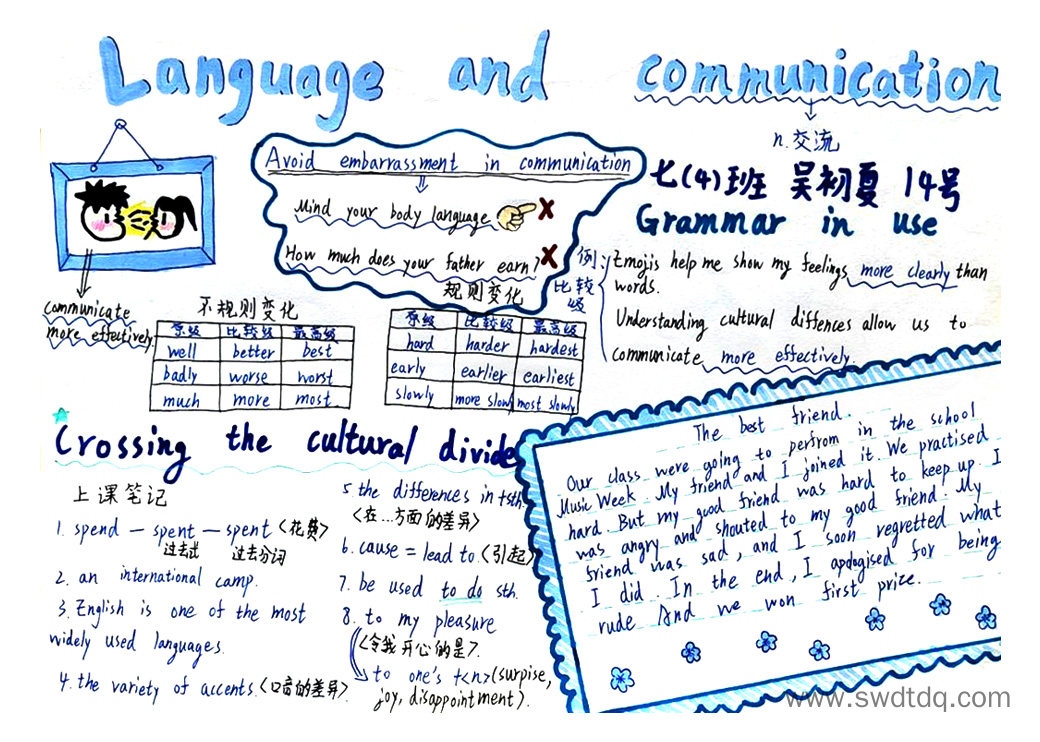 Language and communication
n.交流
Avoid embarrassment in communication
Mind your body language
How much does your father earn?
七(4)班 吴初夏 14号
Grammar in use
例:
比较级
Emojis help me show my feelings more clearly than
words.
Understanding cultural diffences allow us to
communicate more effectively.
communicate
more effectively.
不规则变化
原级 比较级 最高级
well better best
badly worse worst
much more most
规则变化
原级 比较级 最高级
hard harder hardest
early earlier earliest
slowly more slowly most slowly
Crossing the cultural divide
上课笔记
1. spend — spent — spent <花费>
过去式 过去分词
2. an international camp.
3. English is one of the most
widely used languages.
4. the variety of accents.<口音的差异>
5 the differences in +sth.
<在...方面的差异>
6. cause = lead to <引起>
7. be used to do sth.
8. to my pleasure
<令我开心的是>.
to one's +<n>(surpise,
joy, disappointment).
The best friend.
Our class were going to perfrom in the school
Music Week. My friend and I joined it. We practised
hard. But my good friend was hard to keep up. I
was angry and shouted to my good friend. My
friend was sad, and I soon regretted what
I did. In the end, I apologised for being
rude And we won first prize.
www.swdtdq.com